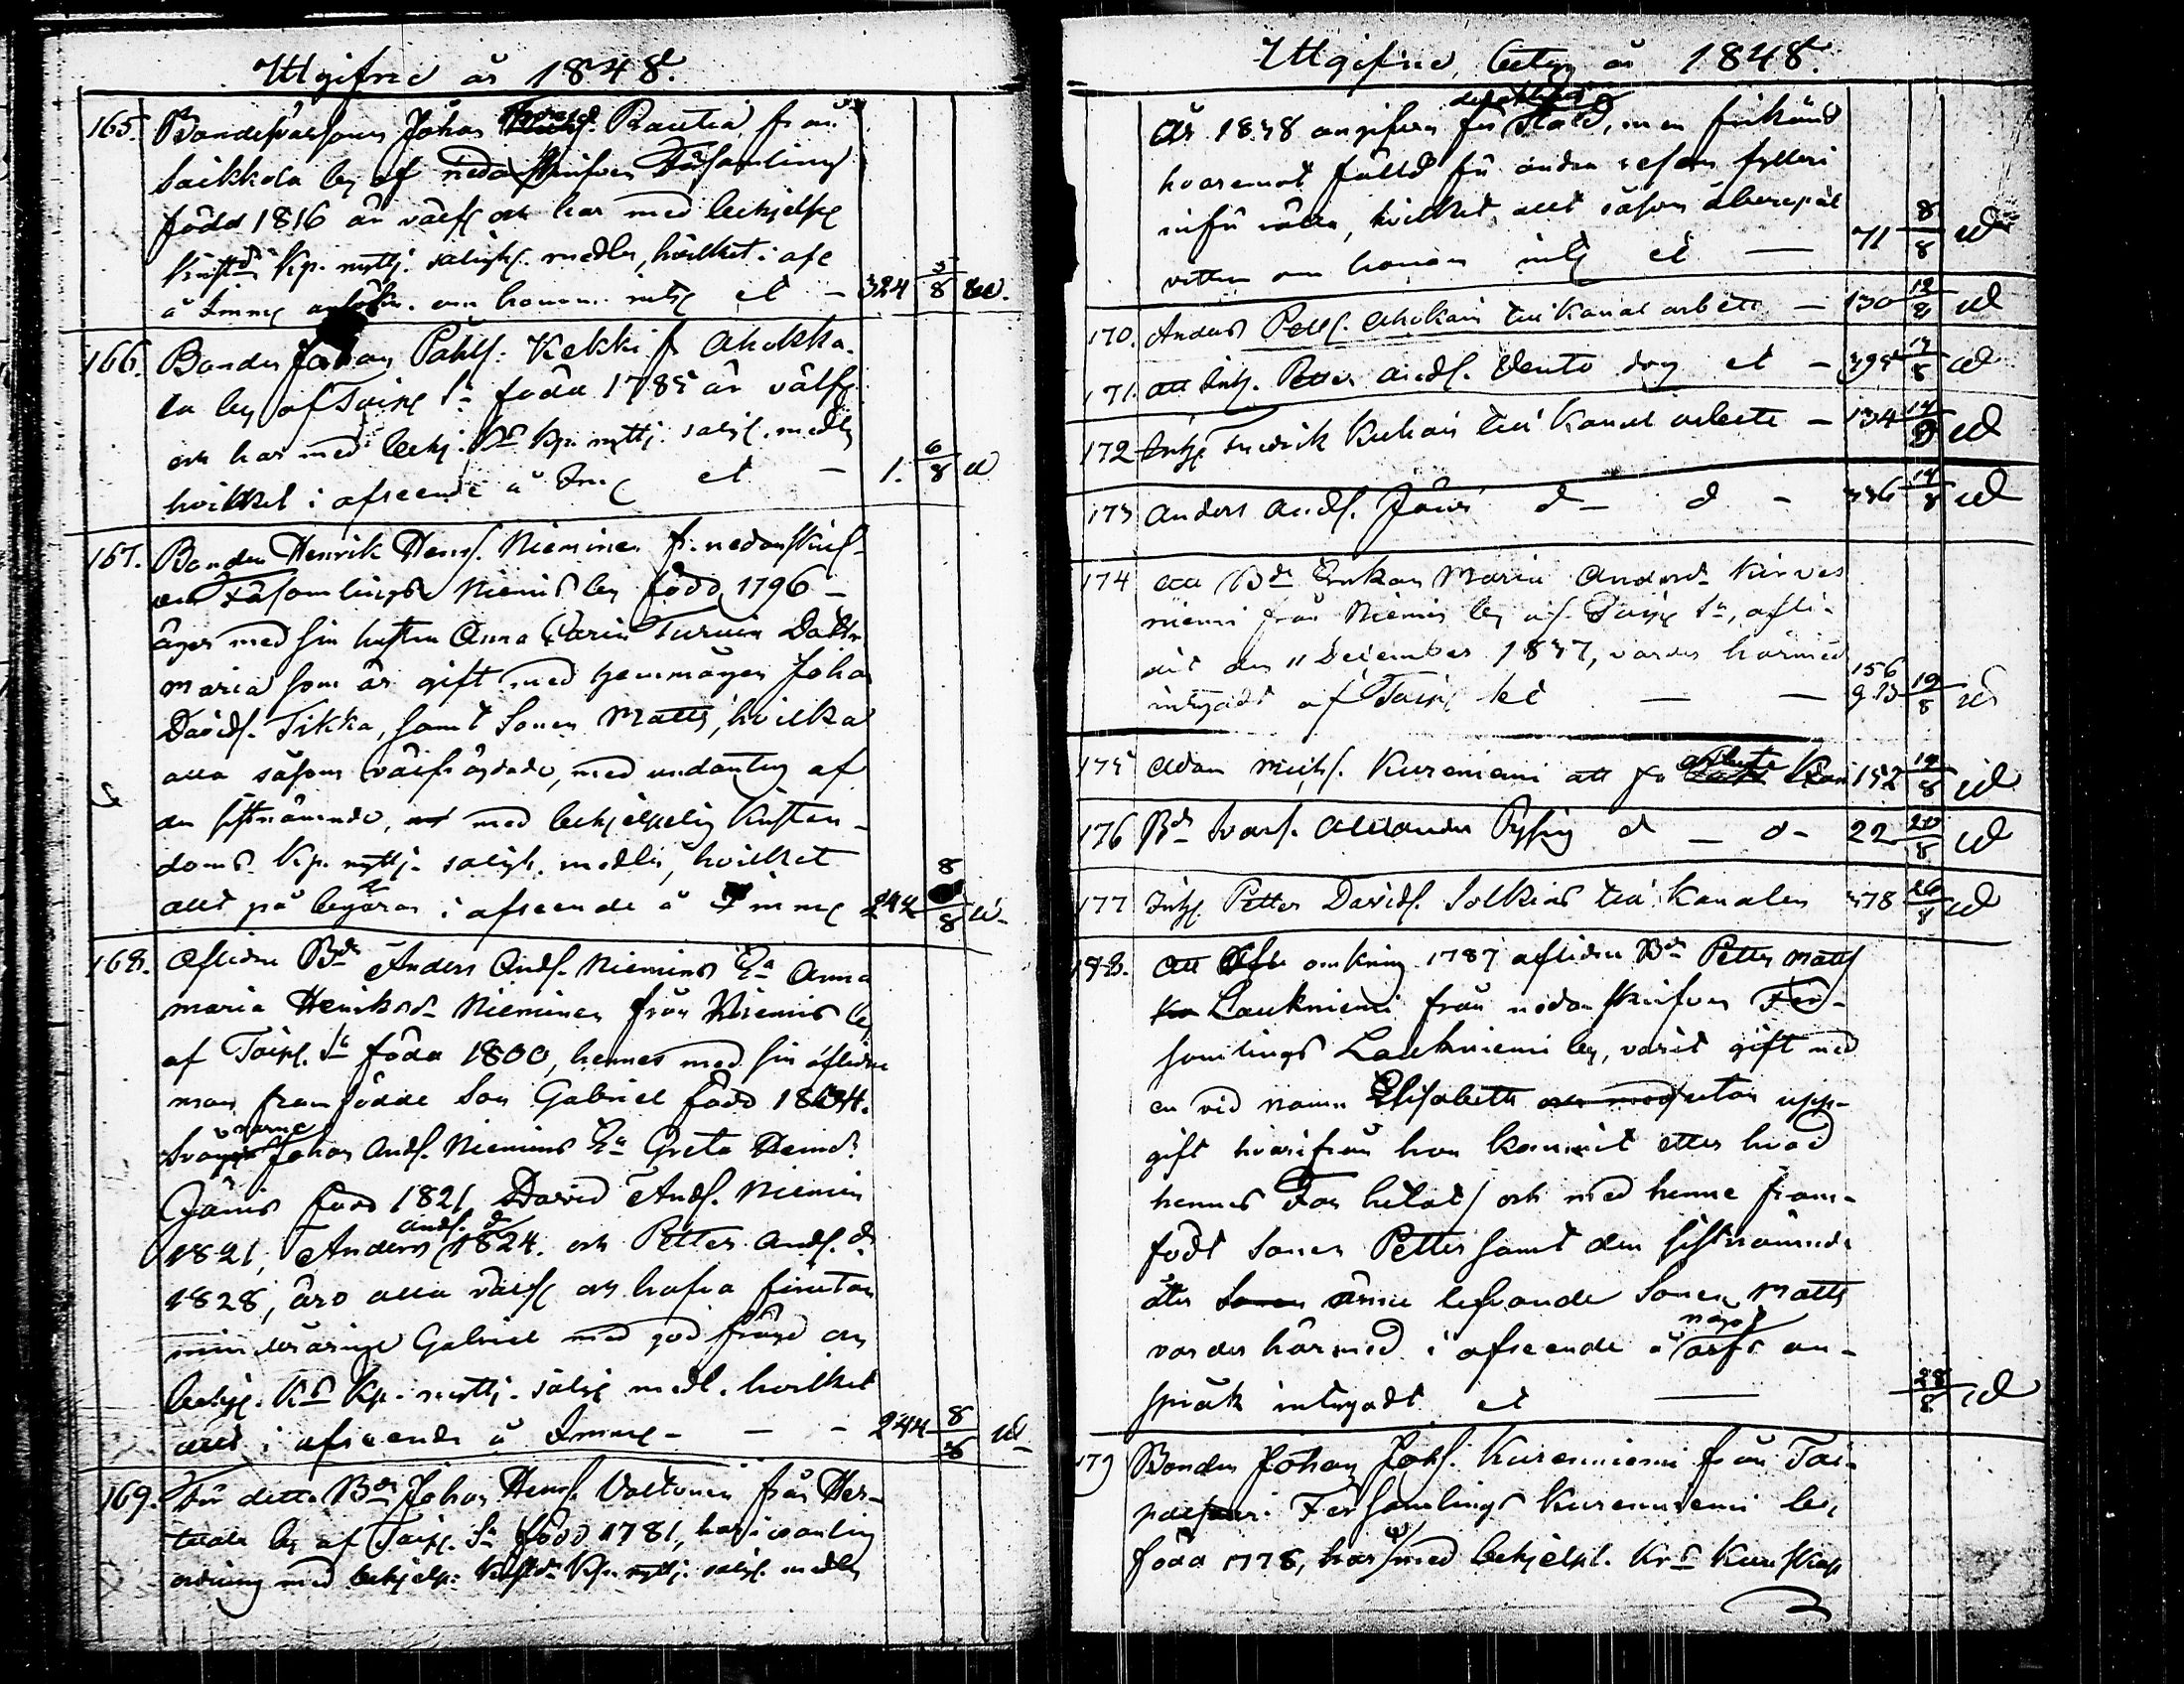 Utgifne år 1848.
165. Bondesvarsonen Johan Rautia från
Saikkola by af nedanskrifven Församling
född 1816 är välfr och har med behjelpl
kristd. Kp. nyttj. saligh. medlen, hvilket i afs
å Immg om honom intyg et — 324 5/8 ud.
166. Bonden Johan Påhls. Kekki fr Ahokka-
la by af Taipl Sn född 1785 är välfr
och har med behj. Kds Kp. nyttj. saligh. medlen
hvilket i afseende å Img et — 1. 6/8 ud
167. Bonden Henrik Henrs. Nieminen fr. nedanskrif-
en Församlings Niemis by född 1796 —
äger med sin hustru Anna Carin Turuin Dottren
Maria som är gift med hemmågen Johan
Davids. Tikka, samt Sonen Matts, hvilka
alla såsom välfrägdade, med undantag af
den sistnämnde, med behjelpelig kristen-
doms Kp. nyttj. saligh. medlen, hvilket
allt på begäran i afseende å Immg 244 8/8 ud
168. Aflidne Bd Anders Ands. Niemins Ea Anna
Maria Henriksd. Nieminen från Niemis by
af Taipl. Sn född 1800, hennes med sin aflidne
man framfödde Son Gabriel född 1834.
Svågrarne Johan Ands. Niemins Ea Greta Henrd.
Jänis född 1821 David Ands. Niemin
1821, Anders Ands. d 1824. och Petter Ands. d
1828, äro alla välfr och hafva förutan
minderårige Gabriel med god frägd och
behjp. Kds Kp. nyttj. salig medl. hvilket
allt i afseende å Immg — — — 244 8/8 ud
169. För detta Bd Johan Henrs. Valtonen från Her-
tuala by af Taipl. Sn född 1781, har i vanlig
ordning med behjelp. kristd. Kp. nyttj. saligh. medlen
Utgifne betyg år 1848.
År 1838 angifven för Stöld, men frikänd
hvaremot fälld för andra resan fylleri
inför rätta, hvilket allt såsom
vitter om honom intyg et — 71 8/8 ud
170. Anders Petts. Ahokain till Kanal arbete — 130 12/8 ud
171. att Inhs. Petter Ands. Vento dog et — 395 14/8 ud
172 Inhs Fredrik Kuhain till Kanal arbete — 134 14/8 ud
173 Anders Ands. Jäni d — d — 336 14/8 ud
174 att Bde Enkan Maria Andersd. Kirves
niemi från Niemis by af Taipl Sn, afli-
dit den 11 December 1847, varder härmed
intygadt af Taipl et — — 156 19/8 ud
175 Adam Michs. Kurenniemi att få arbete Kan 152 19/8 ud
176 Bd Svars. Alexander d — d — 22 20/8 ud
177 Inhs. Petter Davids. Solkins till Kanalen 378 26/8 ud
178. Att omkring 1787 aflidne Bd Petter Matts
Laukniemi från nedanskrifven För-
samlings Laukniemi by, varit gift med
en vid namn Elisabeth utan upp-
gift hvarifrån hon kommit eller hvad
hennes Far hetat, och med henne fram-
födt Sonen Petter samt den sistnämnde
åter ännu lefvande Sonen Matts
varder härmed i afseende å något arfs an-
språk intygadt et — 28/8 ud
179 Bonden Johan Johs. Kurenniemi från Tai-
palsaari Församlings Kurenniemi by
född 1778, har med behjelpl. Krds Kunskap